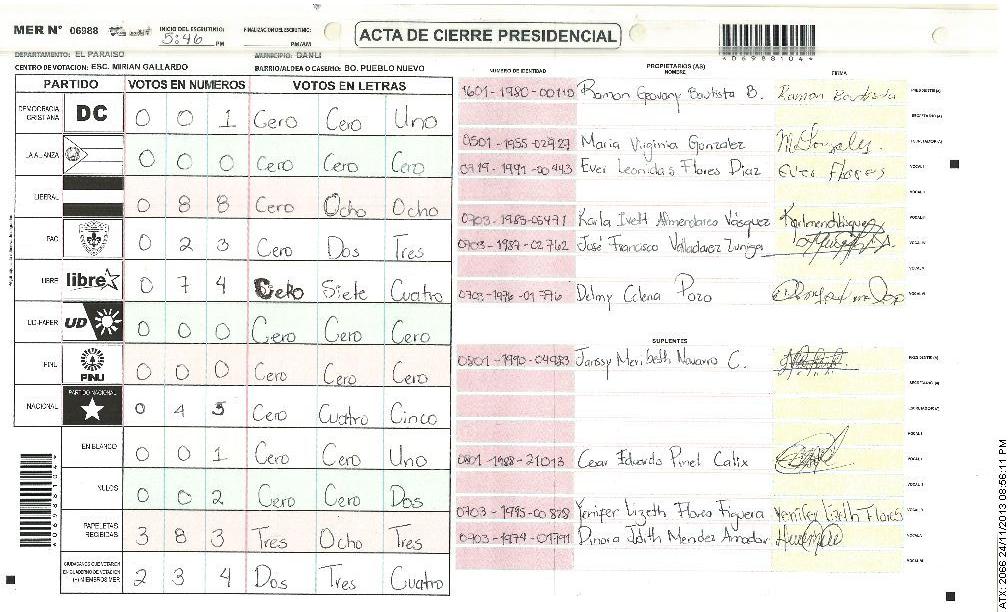 MER N° 06988 INICIO DEL ESCRUTINIO: 5:46 PM FINALIZACION ESCRUTINIO: PM/AM
ACTA DE CIERRE PRESIDENCIAL
*06988104*
DEPARTAMENTO: EL PARAISO MUNICIPIO: DANLI
CENTRO DE VOTACION: ESC. MIRIAN GALLARDO BARRIO/ALDEA O CASERIO: BO. PUEBLO NUEVO
PARTIDO VOTOS EN NUMEROS VOTOS EN LETRAS
DEMOCRACIA CRISTIANA DC 0 0 1 Cero Cero Uno
LA ALIANZA 0 0 0 Cero Cero Cero
LIBERAL 0 8 8 Cero Ocho Ocho
PAC 0 2 3 Cero Dos Tres
LIBRE libre 0 7 4 Cero Siete Cuatro
UD-FAPER UD 0 0 0 Cero Cero Cero
PINU PINU 0 0 0 Cero Cero Cero
NACIONAL PARTIDO NACIONAL 0 4 5 Cero Cuatro Cinco
EN BLANCO 0 0 1 Cero Cero Uno
NULOS 0 0 2 Cero Cero Dos
PAPELETAS RECIBIDAS 3 8 3 Tres Ocho Tres
CIUDADANOS QUE VOTARON EN CUADERNO DE VOTACION (+) MIEMBROS MER 2 3 4 Dos Tres Cuatro
*06988104*
NUMERO DE IDENTIDAD PROPIETARIOS (AS) NOMBRE FIRMA
1601-1980-00110 Ramon Geovany Bautista B. Ramon Bautista PRESIDENTE (A)
SECRETARIO (A)
0501-1955-02927 Maria Virginia Gonzalez M. Gonzales. ESCRUTADOR (A)
0719-1991-00443 Ever Leonidas Flores Diaz Ever Flores VOCAL I
VOCAL II
0703-1985-05471 Karla Ivett Almendarez Vásquez VOCAL III
0703-1987-02762 José Francisco Valladarez Zuniga VOCAL IV
VOCAL V
0703-1976-01776 Delmy Pozo VOCAL VI
SUPLENTES
0801-1990-04983 Jarssy Meribeth Navarro C. PRESIDENTE (A)
SECRETARIO (A)
ESCRUTADOR (A)
VOCAL I
0801-1988-21013 Cesar Eduardo Pinel Calix VOCAL II
VOCAL III
0703-1995-00828 Yenifer Lizeth Flores Figuera Yenifer Lizeth Flores VOCAL IV
0703-1974-01791 Dinora Judith Mendez Amador VOCAL V
VOCAL VI
ATX: 2066 24/11/2013 08:56:11 PM